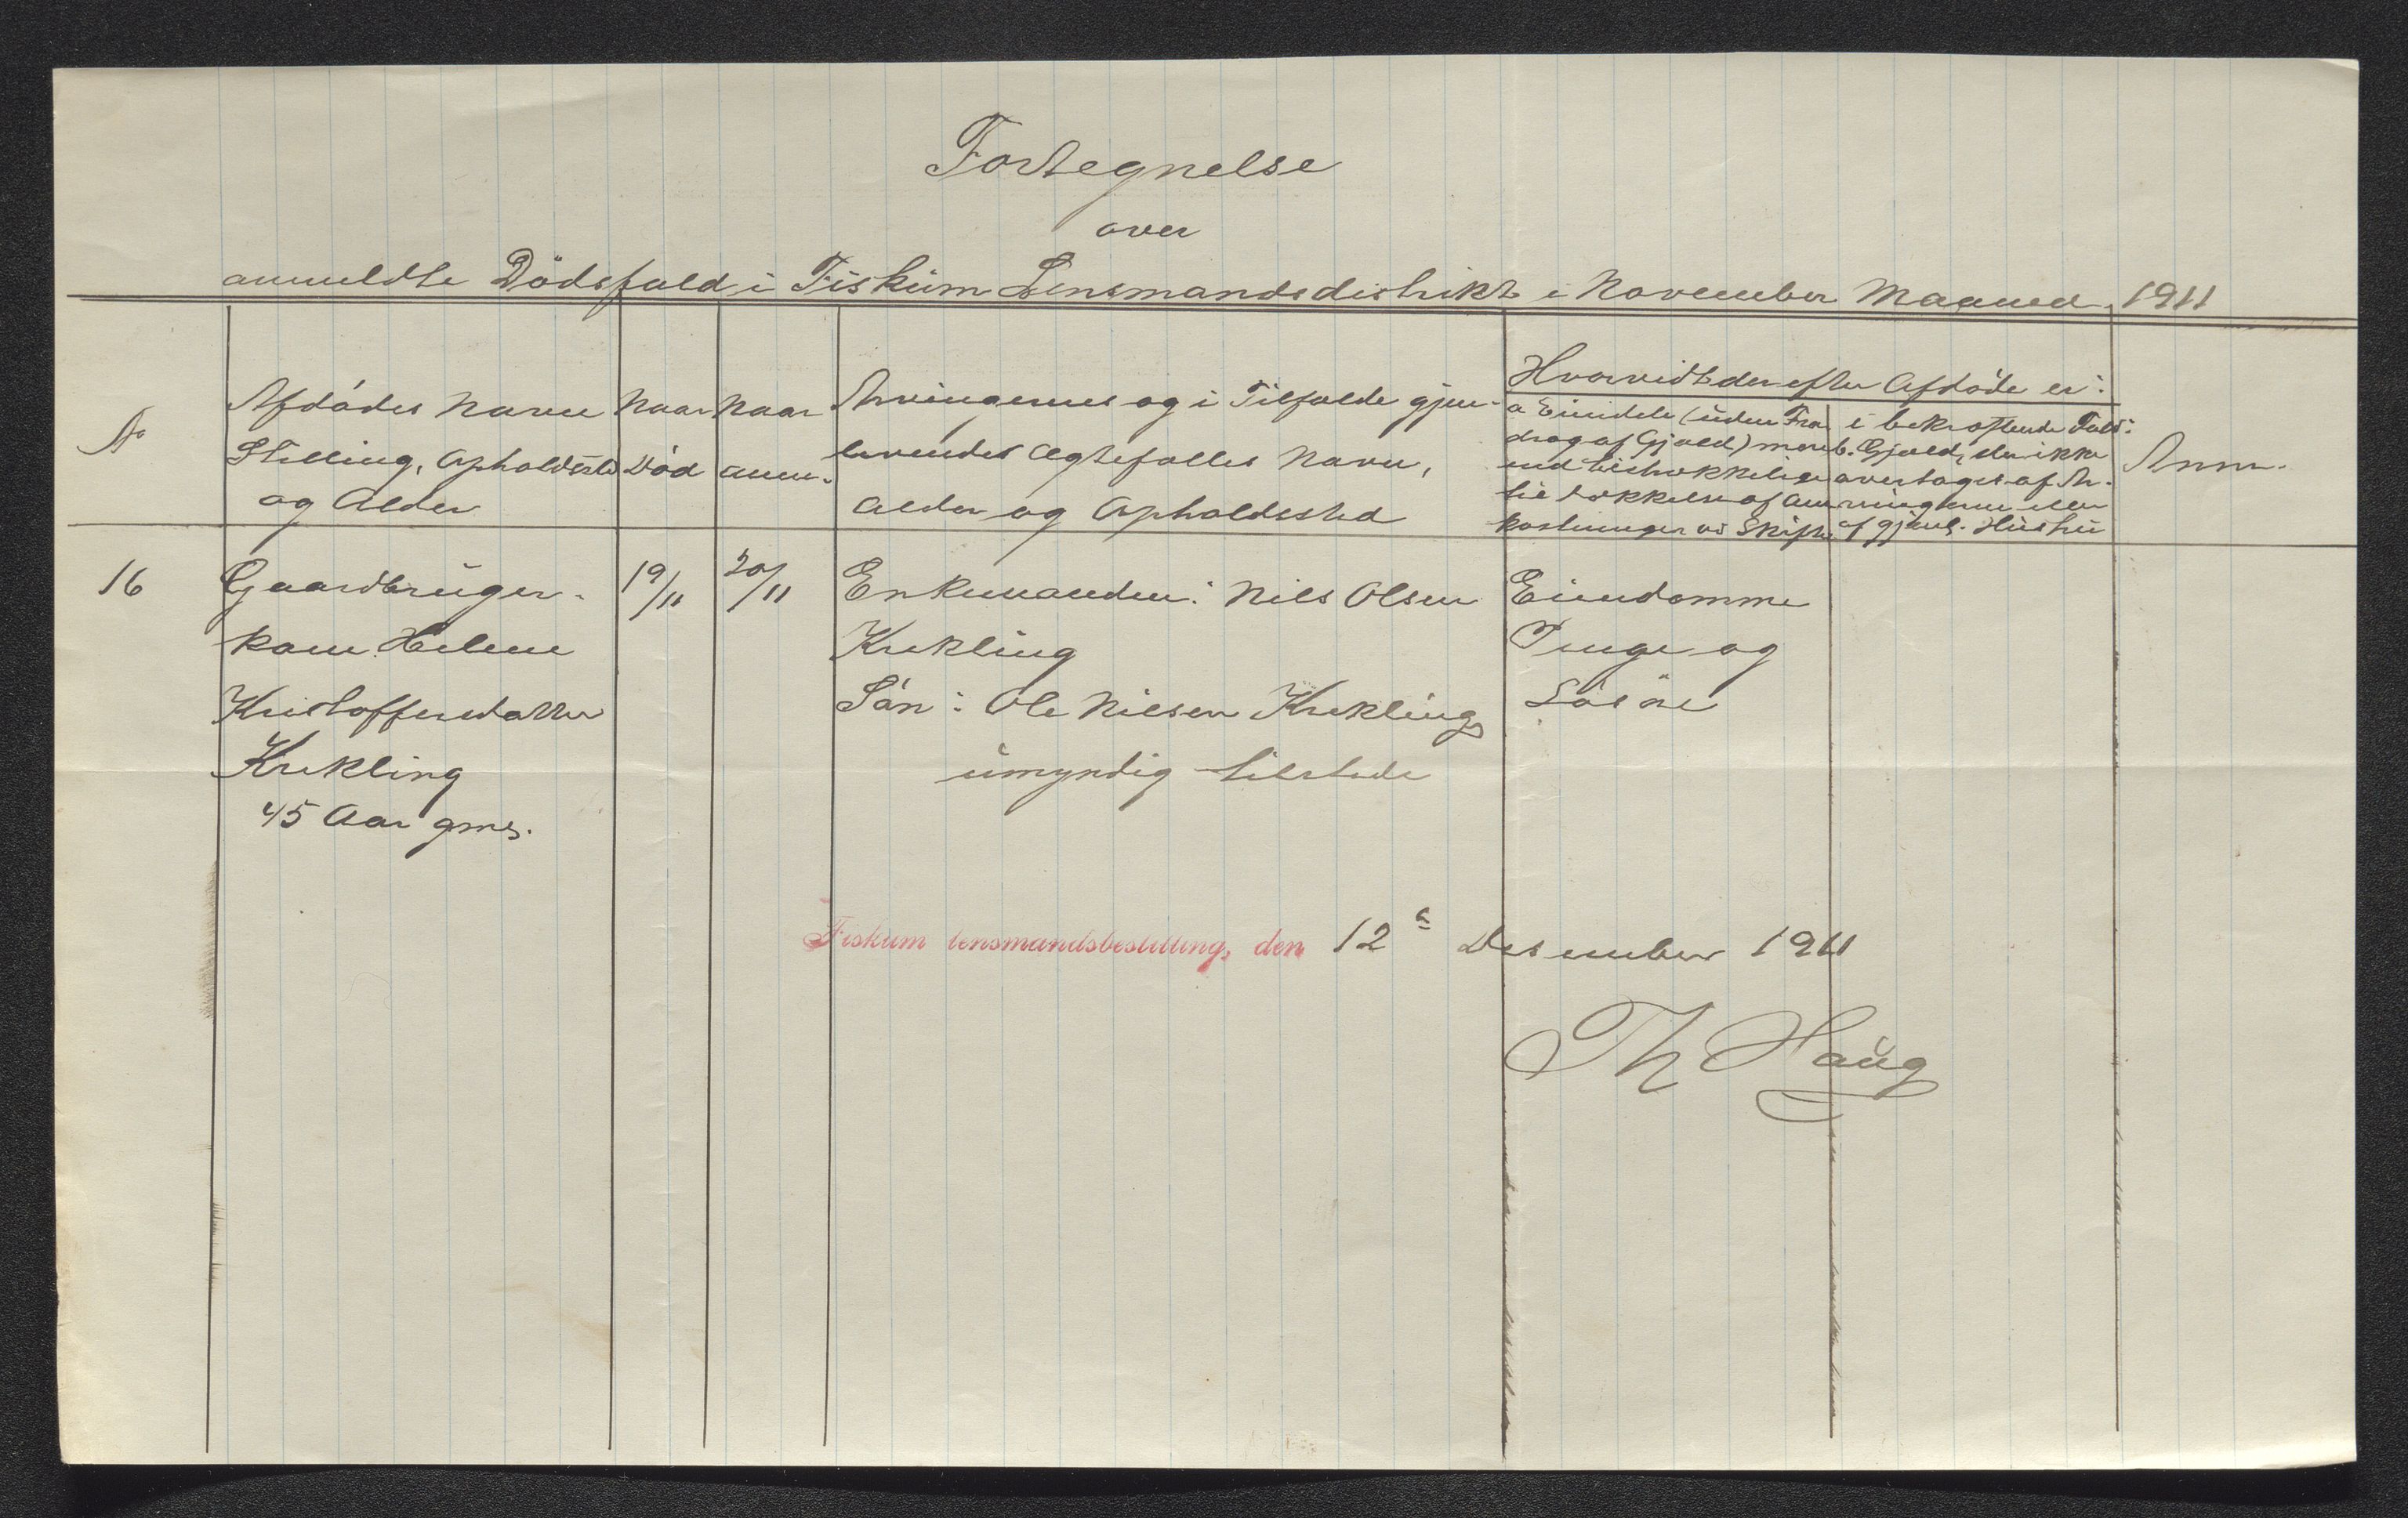 Fortegnelse
over
anmeldte Dödsfald i Fiskum Lensmandsdistrikt i November Maaned 1911
No
Afdödes Navn
Stilling, Opholdssted
og Alder
Naar
Död
Naar
anm.
Arvingernes og i Tilfælde gjen-
levendes Ægtefælles Navn,
Alder og Opholdssted
Hvorvidt der efter Afdöde er:
a Eiendele (uden Fra
drag af Gjæld) mere
end tilstrækkelige
til Dækkelse af Om
kostninger ved Skifte
i bekræftende Fald:
b. Gjæld, der ikke
overtages af Ar-
vingerne eller
af gjenl. Hustru
Anm.
16
Gaardbruger-
kone Helene
Kristoffersdatter
Krekling
45 Aar gml.
19/11
20/11
Enkemanden: Nils Olsen
Krekling
Sön: Ole Nilsen Krekling
umyndig tilstede
Eiendomme
Penge og
Lösöre
Fiskum lensmandsbestilling, den 12te Desember 1911
Th Haug